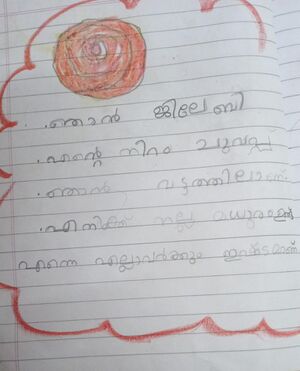 ഞാൻ ജിലേബി
എന്റെ നിറം ചുവപ്പ്
ഞാൻ വട്ടത്തിലാണ്
എനിക്ക് നല്ല മധുരമുണ്ട്
എന്നെ എല്ലാവർക്കും ഇഷ്ടമാണ്